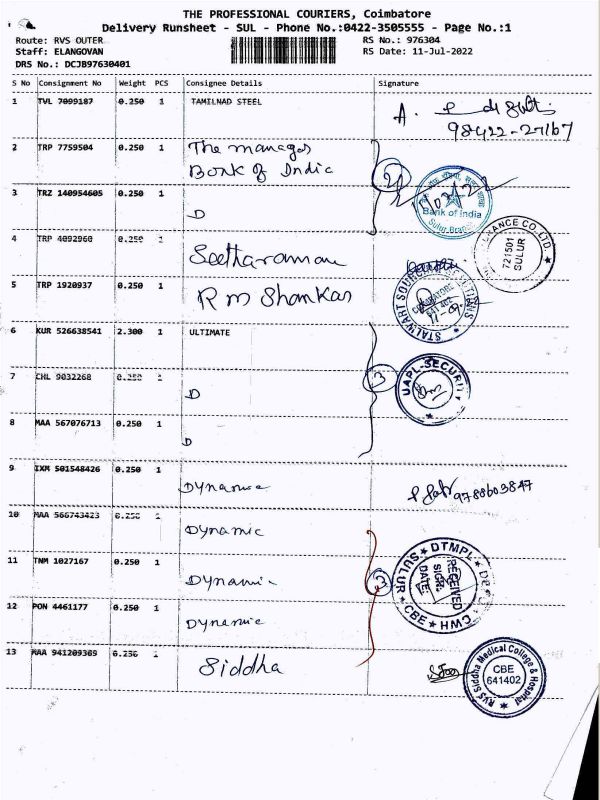 THE PROFESSIONAL COURIERS, Coimbatore
Delivery Runsheet - SUL - Phone No.:0422-3505555 - Page No.:1
Route: RVS OUTER
RS No.: 976304
Staff: ELANGOVAN
RS Date: 11-Jul-2022
DRS No.: DCJB97630401
S No Consignment No Weight PCS Consignee Details Signature
1 TVL 7099187 0.250 1 TAMILNAD STEEL
98422-27167
2 TRP 7759504 0.250 1 The manager
Bank of India
2
Bank of India
Sulur
3 TRZ 140954605 0.250 1 D
4 TRP 4092960 0.250 1 Seetharaman
CO. LTD.
721501
SULUR
5 TRP 1920937 0.250 1 R M Shankar
STALWART
COIMBATORE
641 402
6 KUR 526638541 2.300 1 ULTIMATE
3
UAPL-SECURITY
7 CHL 9032268 0.250 1 D
8 MAA 567076713 0.250 1 D
9 IXM 501548426 0.250 1 Dynamic
9788603847
10 MAA 566743423 0.250 1 Dynamic
11 TNM 1027167 0.250 1 Dynamic
3
DTMPL
SULUR
CBE
CWH
RECEIVED
SIGN:
DATE:
12 PON 4461177 0.250 1 Dynamic
13 MAA 941209369 0.250 1 Siddha
RVS Siddha Medical College & Hospital
CBE
641402